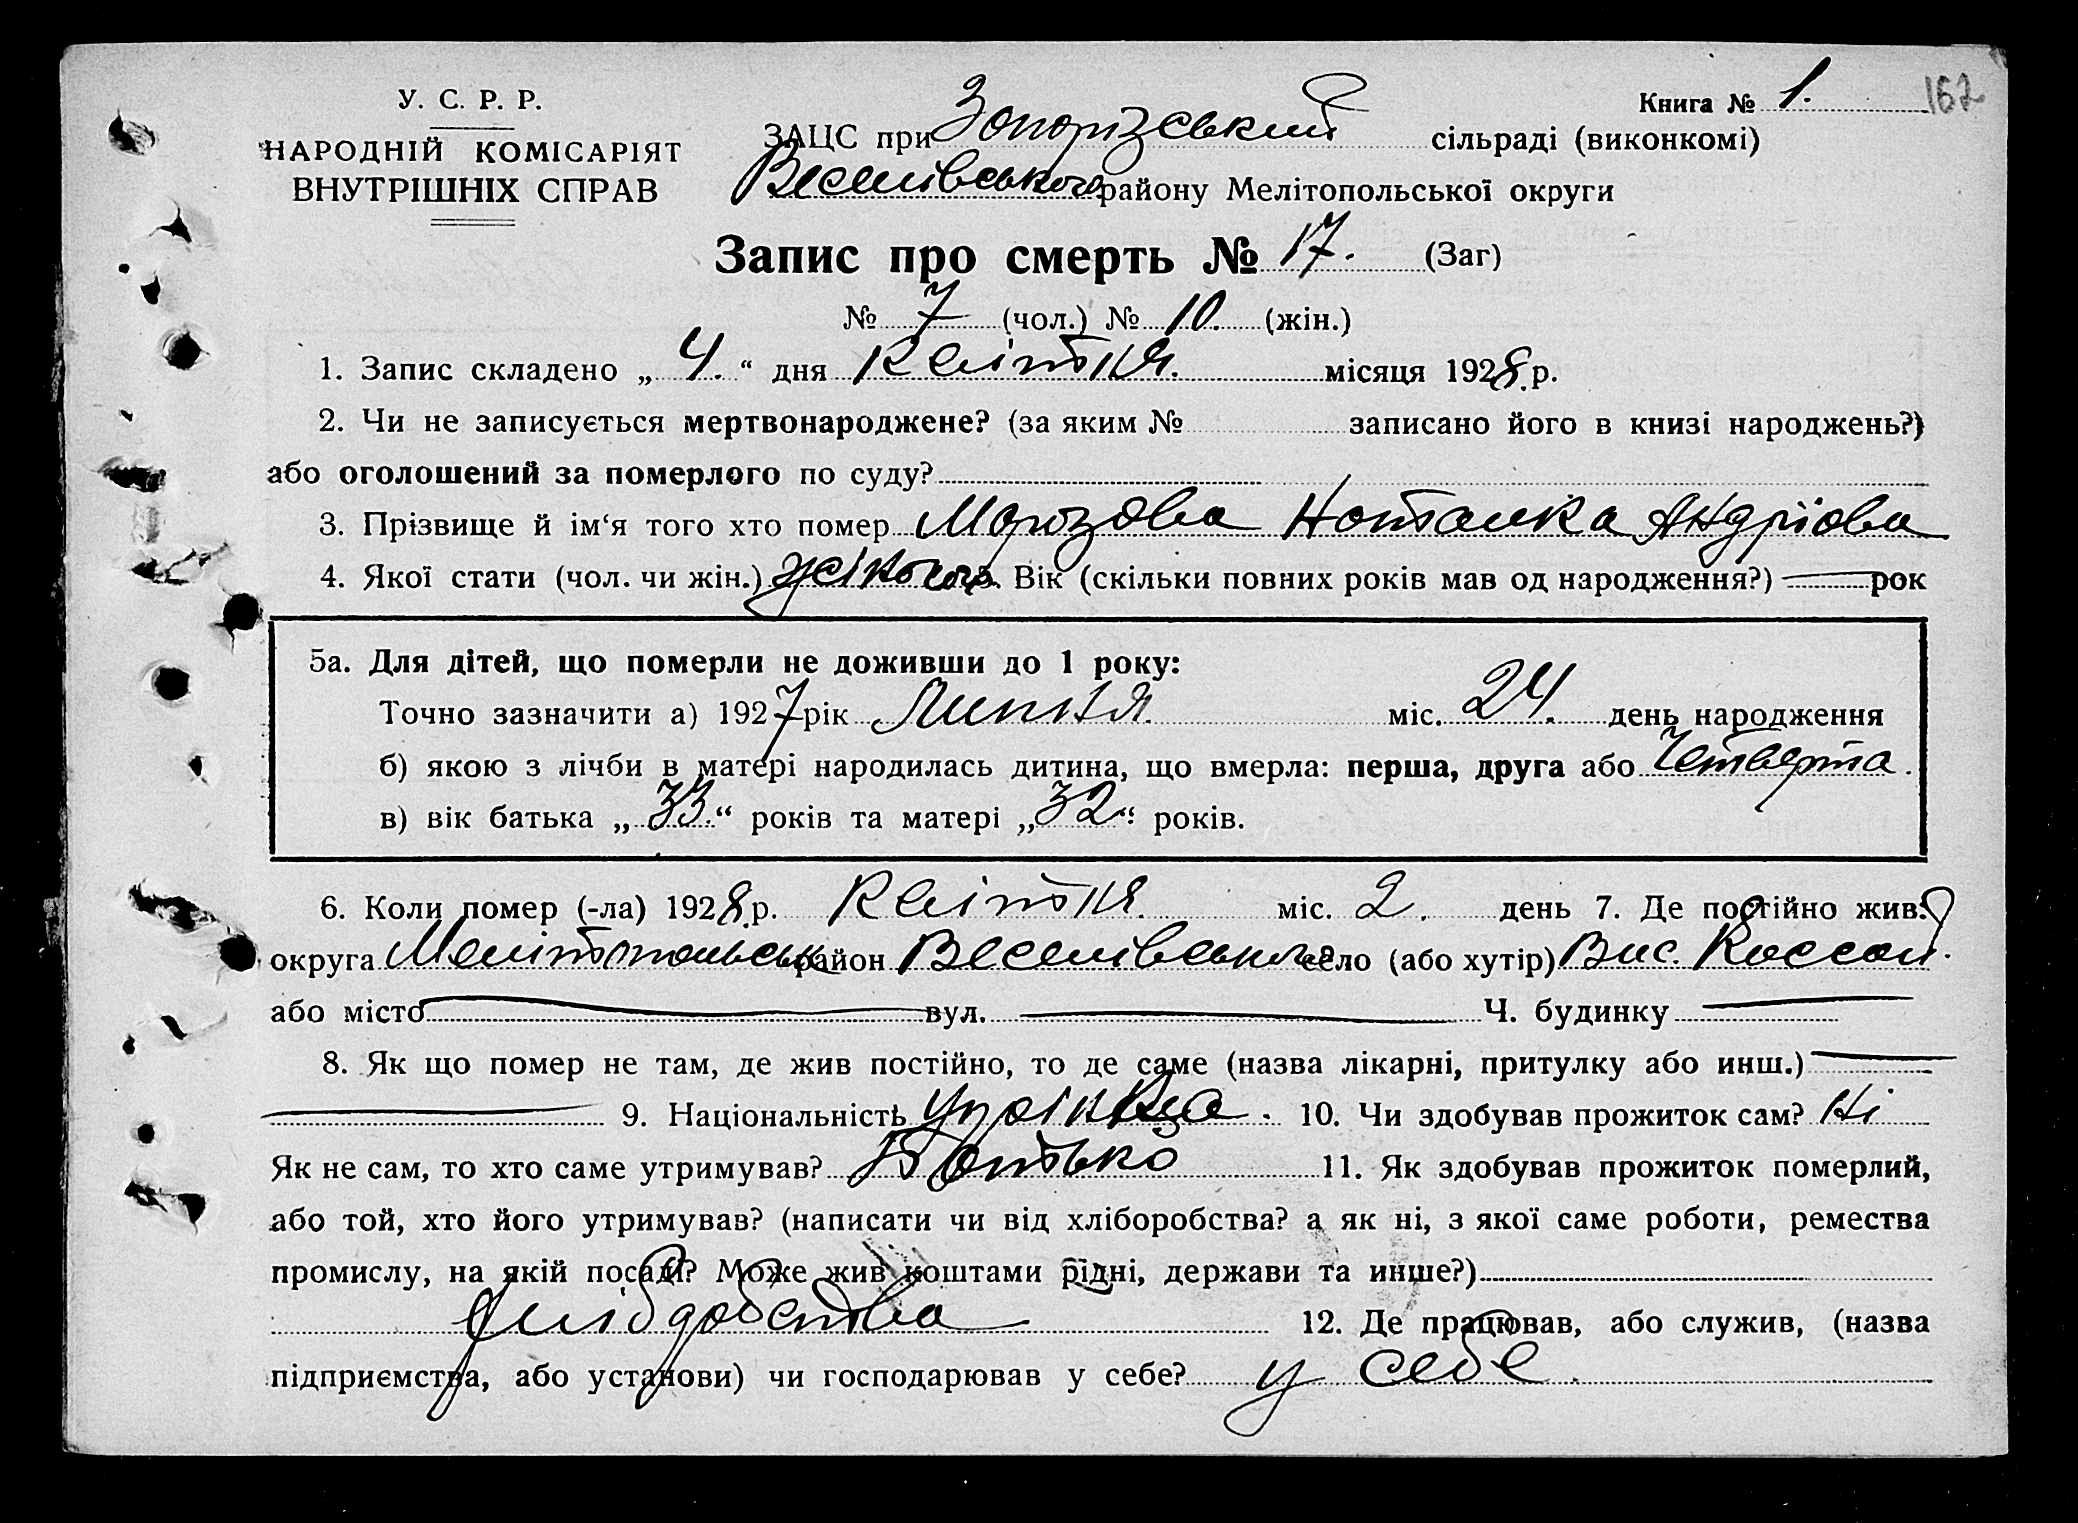 У. С. Р. Р.
НАРОДНІЙ КОМІСАРІЯТ
ВНУТРІШНІХ СПРАВ
Книга № 1. 162
ЗАЦС при Запорізський сільраді (виконкомі)
Веселівського району Мелітопольської округи
Запис про смерть № 17. (Заг)
№ 7 (чол.) № 10. (жін.)
1. Запис складено „ 4. “ дня Квітня. місяця 1928 р.
2. Чи не записується мертвонароджене? (за яким № записано його в книзі народжень?)
або оголошений за померлого по суду?
3. Прізвище й ім‘я того хто помер Марозова Наталка Андрїова
4. Якої стати (чол. чи жін.) жіночого. Вік (скільки повних років мав од народження?) — рок
5а. Для дітей, що померли не доживши до 1 року:
Точно зазначити а) 1927 рік Липня. міс. 24. день народження
б) якою з лічби в матері народилась дитина, що вмерла: перша, друга або Четверта.
в) вік батька „ 33. “ років та матері „ 32 “ років.
6. Коли помер (-ла) 1928 р. Квітня. міс. 2. день 7. Де постійно жив?
округа Мелітопольська район Веселівського село (або хутір) Вис.
або місто — вул. — Ч. будинку —
8. Як що помер не там, де жив постійно, то де саме (назва лікарні, притулку або инш.) —
— 9. Національність Українка. 10. Чи здобував прожиток сам? Ні
Як не сам, то хто саме утримував? Батько 11. Як здобував прожиток померлий,
або той, хто його утримував? (написати чи від хліборобства? а як ні, з якої саме роботи, ремества
промислу, на якій посаді? Може жив коштами рідні, держави та инше?)
12. Де працював, або служив, (назва
підприємства, або установи) чи господарював у себе? у себе.